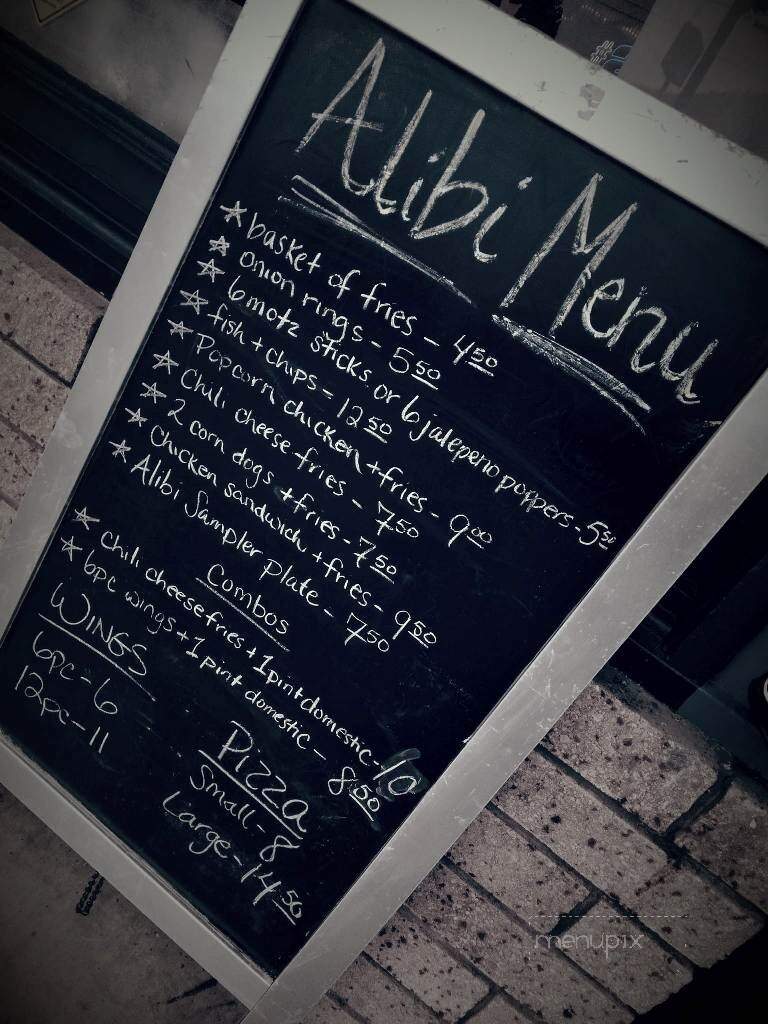 Alibi Menu
☆ basket of fries - 4 50
☆ onion rings - 5 50
☆ 6 motz sticks or 6 jalepeno poppers - 5 50
☆ fish + chips - 12 50
☆ Popcorn chicken + fries - 9 00
☆ Chili cheese fries - 7 50
☆ 2 corn dogs + fries - 7 50
☆ Chicken sandwich + fries - 9 50
☆ Alibi Sampler Plate - 7 50
Combos
☆ Chili cheese fries + 1 pint domestic - 10
☆ 6pc wings + 1 pint domestic - 8 50
WINGS
6pc - 6
12pc - 11
Pizza
Small - 8
Large - 14 50
menupix